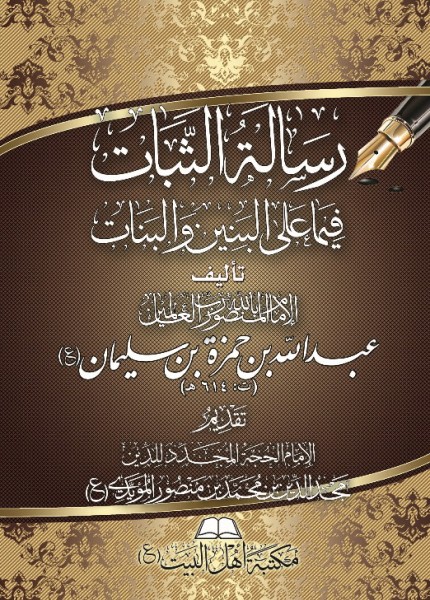 رسالة الثبات
فيما على البنين والبنات
تأليف
الإمام المنصور بالله رب العالمين
عبدالله بن حمزة بن سليمان (ع)
(ت: ٦١٤ هـ)
تقديم
الإمام الحجة المجدد للدين
مجدالدين بن محمد بن منصور المؤيدي (ع)
مكتبة أهل البيت (ع)